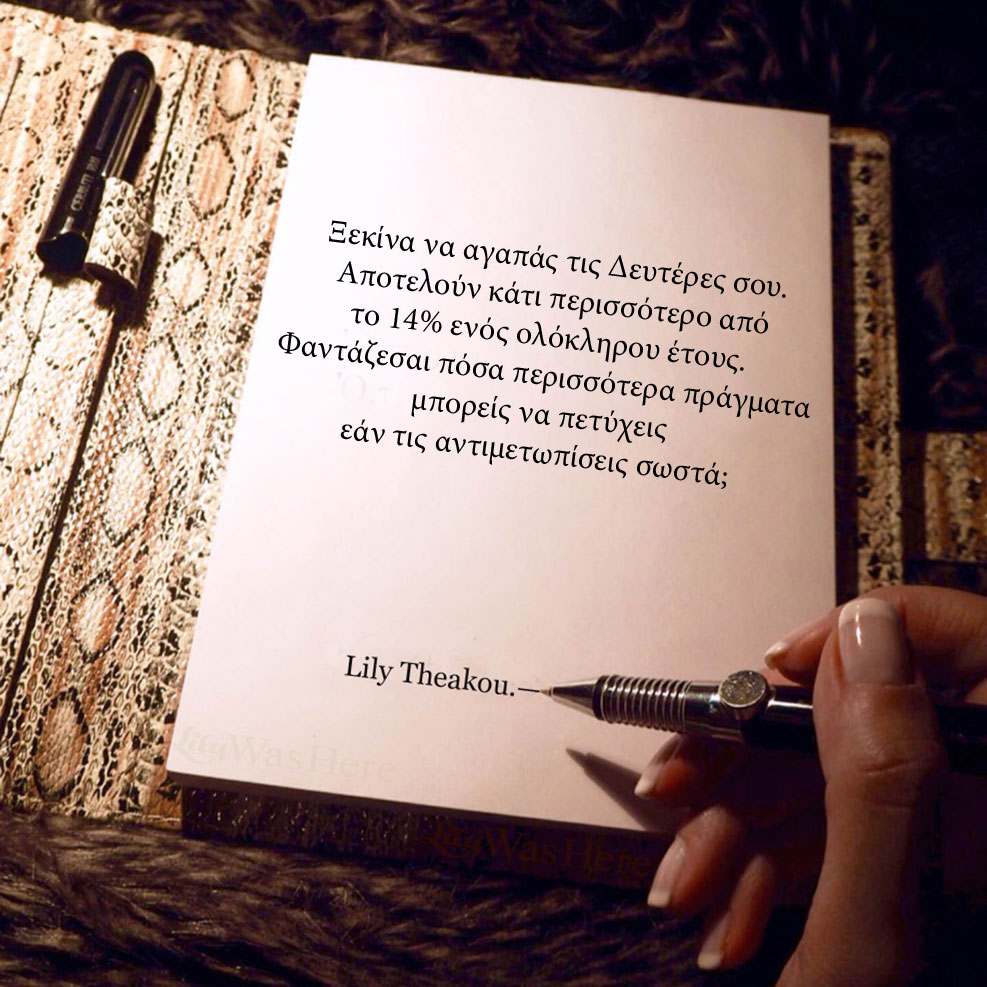 Ξεκίνα να αγαπάς τις Δευτέρες σου.
Αποτελούν κάτι περισσότερο από
το 14% ενός ολόκληρου έτους.
Φαντάζεσαι πόσα περισσότερα πράγματα
μπορείς να πετύχεις
εάν τις αντιμετωπίσεις σωστά;
Lily Theakou.—
LilyWasHere
LilyWasHere
CERRUTI 1881